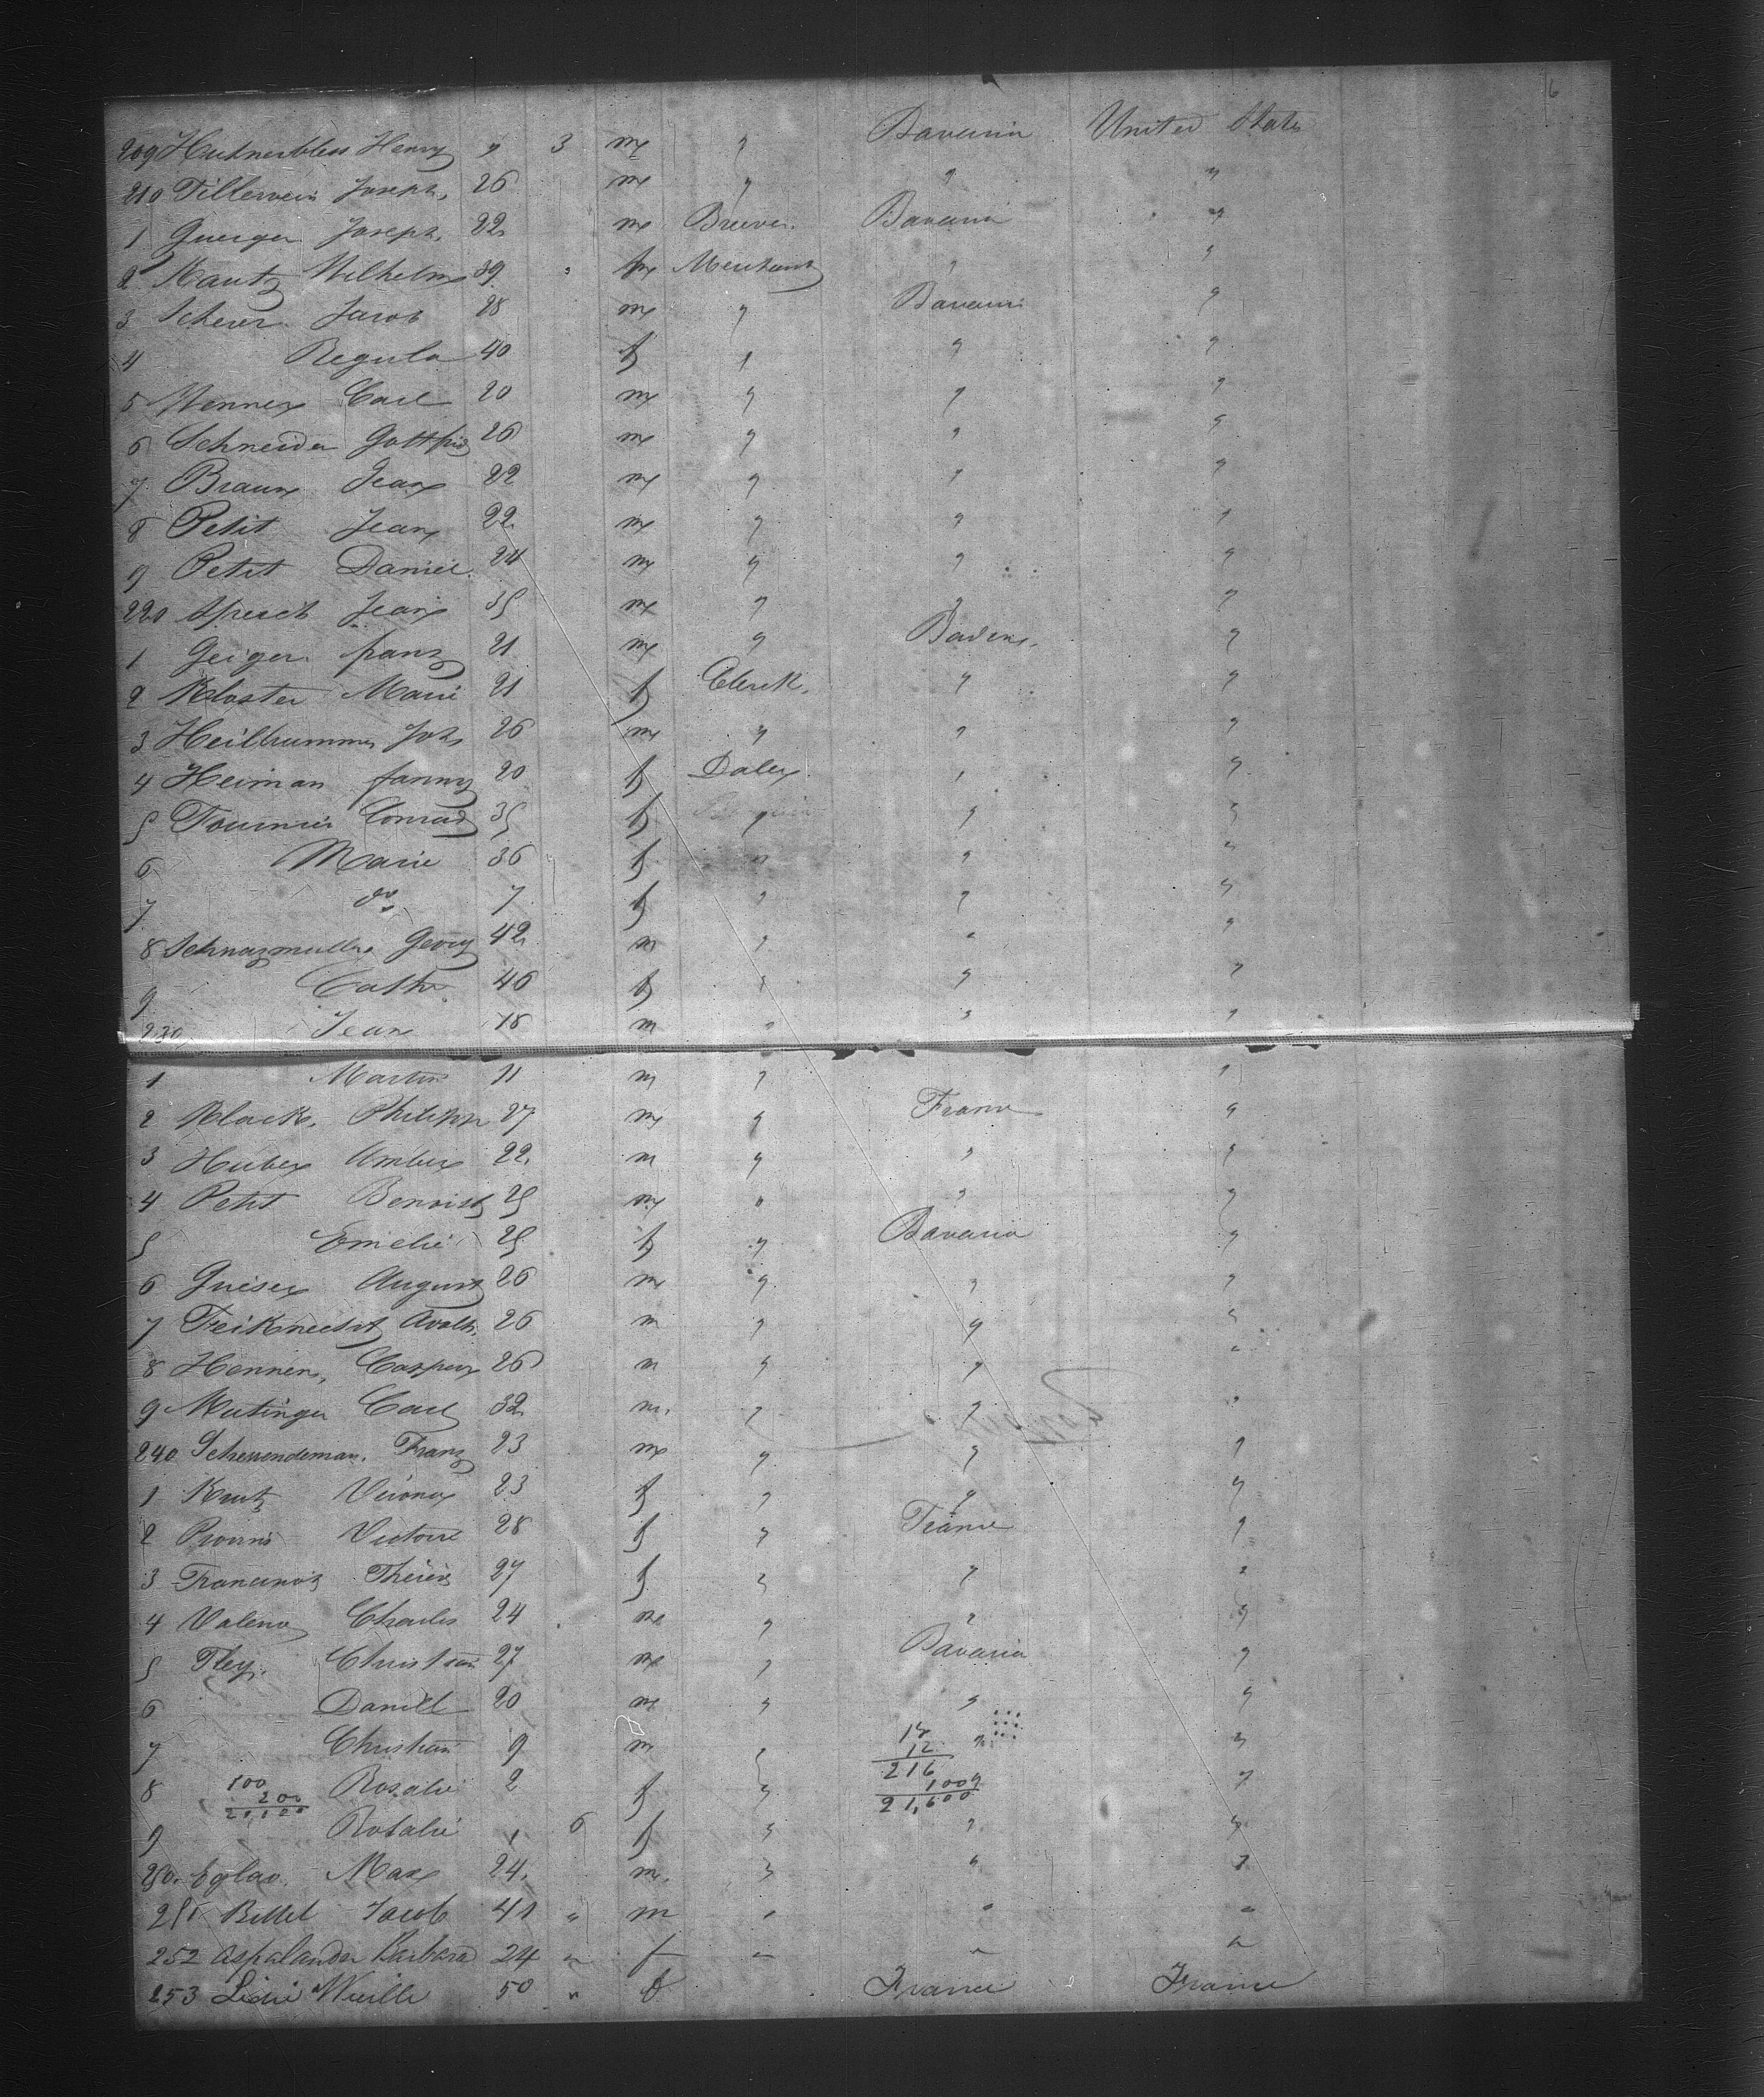 6
209 Henry " 3 m " Bavaria United States
210 Tillerwein Joseph 26 m " " "
1 Guerger Joseph 22 m Brewer Bavaria "
2 Kautz Wilhelm 39 m Merchant " "
3 Scherer Jacob 28 m " Bavaria "
4 Regula 40 f " " "
5 Wenner Carl 20 m " " "
6 Schneider Gottfrid 26 m " " "
7 Braun Jean 22 m " " "
8 Petit Jean 22 m " " "
9 Petit Daniel 24 m " " "
220 Specit Jean 35 m " " "
1 Geiger franz 21 m " Baden "
2 Kloster Marie 21 f Clerk " "
3 Heilbrumm Joh 26 m " " "
4 Heiman fanny 20 f " "
5 Tournier Conrad 35 f " " "
6 Marie 36 f " " "
7 do 7 f " " "
8 Schnazmuller Georg 42 m " " "
9 Cath 40 f " " "
230 Jean 18 m " " "
1 Martin 11 m " "
2 Klack Philipp 27 m " France "
3 Huber 22 m " " "
4 Petit Benoist 25 m " " "
5 Emelie 25 f " Bavaria "
6 Gneser August 26 m " " "
7 Feiknecht 26 m " " "
8 Hennen, Casper 26 m " " "
9 Mutinger Carl 32 m " " "
240 Schewendeman Franz 23 m " " "
1 Krutz 23 f " " "
2 Victoire 28 f " France "
3 27 f " " "
4 Charles 24 m " " "
5 Fley Christian 27 m " Bavaria "
6 Daniel 20 m " " "
7 Christian 9 m " " "
18
12
216
100
21,600
8 Rosalie 2 f " " "
100
200
20,000
9 Rosalie " 6 f " " "
250 Eglao Max 24 m " " "
251 Bittel Jacob 41 " m " " "
252 Aspalander Barbara 24 " f " " "
253 Lidie Weille 50 " f France France